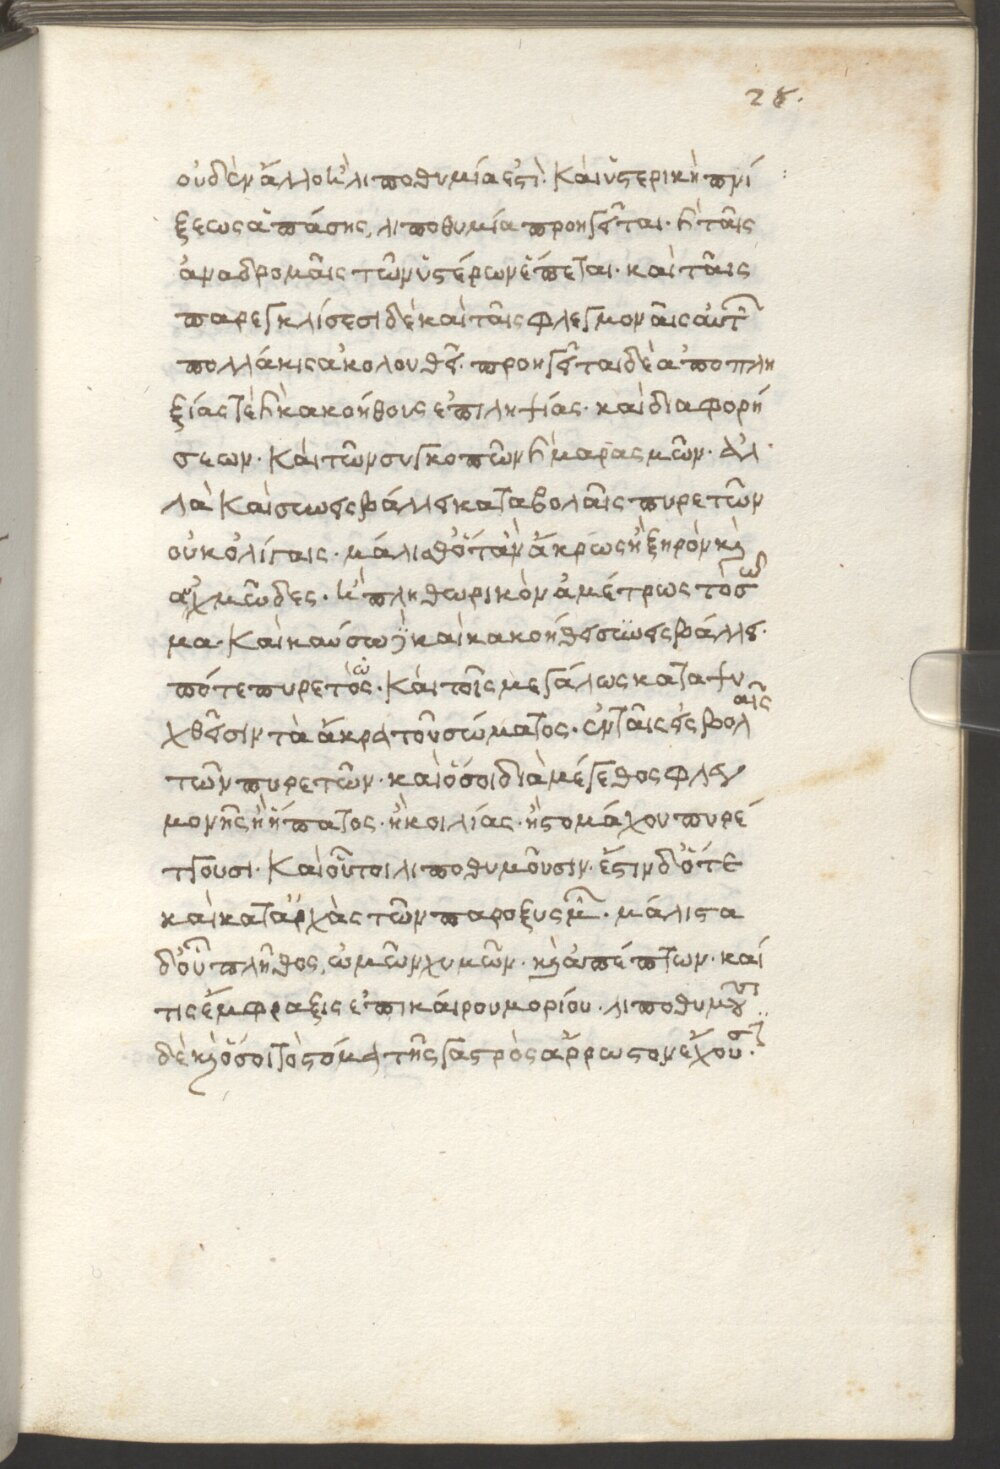 28.
οὐδὲν ἄλλο ἢ λιποθυμία ἐστὶ. Καὶ ὑστερικῆ πνί
ξεως ἁπάσης, λιποθυμία προηγεῖται. ἢ ταῖς
ἀναδρομαῖς τῶν ὑστέρων ἕπεται. καὶ ταῖς
παρεγκλίσεσι δὲ καὶ ταῖς φλεγμοναῖς αὐτῶν
πολλάκις ἀκολουθεῖ. προηγεῖται δὲ ἀποπλη
ξίας τὲ ἢ κακοήθους ἐπιληψίας. καὶ διαφορή
σεων. Καὶ τῶν συγκοπῶν ἢ μαρασμῶν. ἀλ
λὰ Καὶ σὺν εἰσβάλλει καταβολαῖς πυρετῶν
οὐκ ὀλίγαις. μάλισθ' ὅταν ἄκρως ἢ ξηρὸν καὶ
αὐχμῶδες. ἢ πληθωρικὸν ἀμέτρως τὸ σῶ
μα. Καὶ καύσω καὶ κακοήθει συνεισβάλλει
πότε πυρετῶ. Καὶ τοῖς μεγάλως καταψυ
χθεῖσιν τὰ ἄκρα τοῦ σώματος. ἐν ταῖς εἰσβολαῖς
τῶν πυρετῶν. καὶ ὅσοι διὰ μέγεθος φλεγ
μονῆς ἢ ἥπατος. ἢ κοιλίας. ἢ στομάχου πυρέ
ττουσι. Καὶ οὗτοι λιποθυμοῦσιν. ἔστιν δ' ὅτε
καὶ κατ' ἀρχὰς τῶν παροξυσμῶν. μάλιστα
δ' οὖν πλῆθος, ὠμῶν χυμῶν. καὶ ἀπέπτων. καί
τις ἔμφραξις ἐπικαίρου μορίου. λιποθυμοῦσι
δὲ καὶ ὅσοι τὸ στόμα τῆς γαστρὸς ἄρρωστον ἔχουσι.